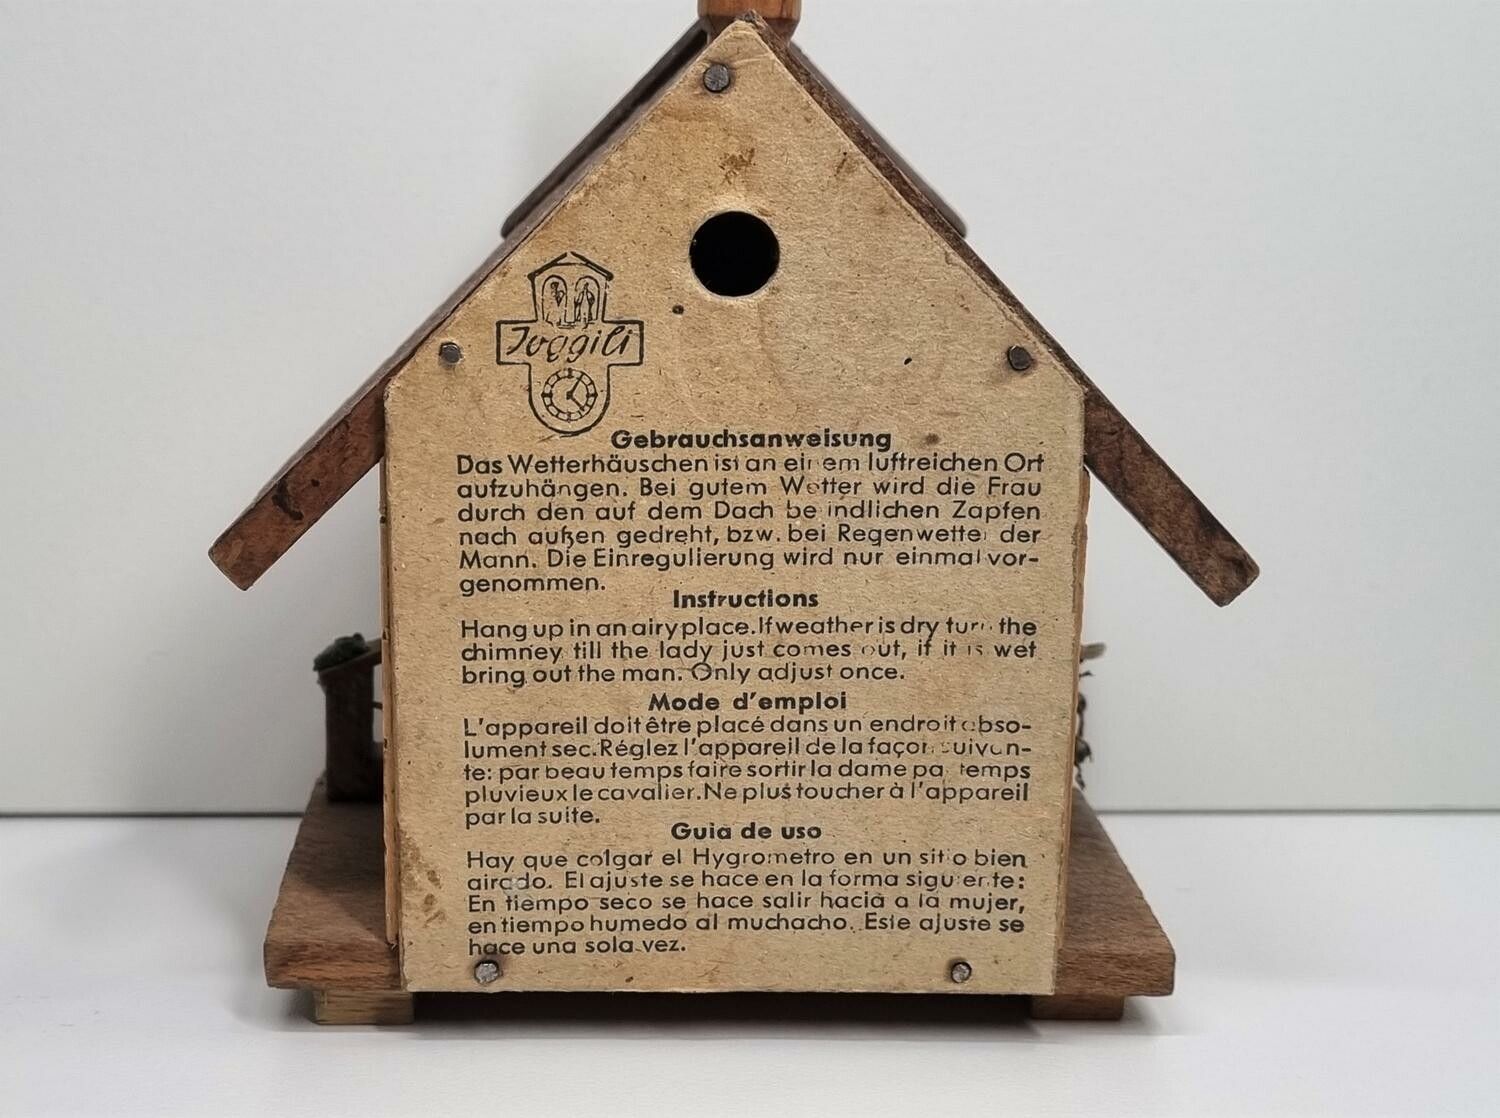 Joggili
Gebrauchsanweisung
Das Wetterhäuschen ist an einem luftreichen Ort
aufzuhängen. Bei gutem Wetter wird die Frau
durch den auf dem Dach befindlichen Zapfen
nach außen gedreht, bzw. bei Regenwetter der
Mann. Die Einregulierung wird nur einmal vor-
genommen.
Instructions
Hang up in an airy place. If weather is dry turn the
chimney till the lady just comes out, if it is wet
bring out the man. Only adjust once.
Mode d'emploi
L'appareil doit être placé dans un endroit abso-
lument sec. Réglez l'appareil de la façon suivan-
te: par beau temps faire sortir la dame par temps
pluvieux le cavalier. Ne plus toucher à l'appareil
par la suite.
Guia de uso
Hay que colgar el Hygrometro en un sitio bien
airado. El ajuste se hace en la forma siguiente:
En tiempo seco se hace salir hacia a la mujer,
en tiempo humedo al muchacho. Este ajuste se
hace una sola vez.